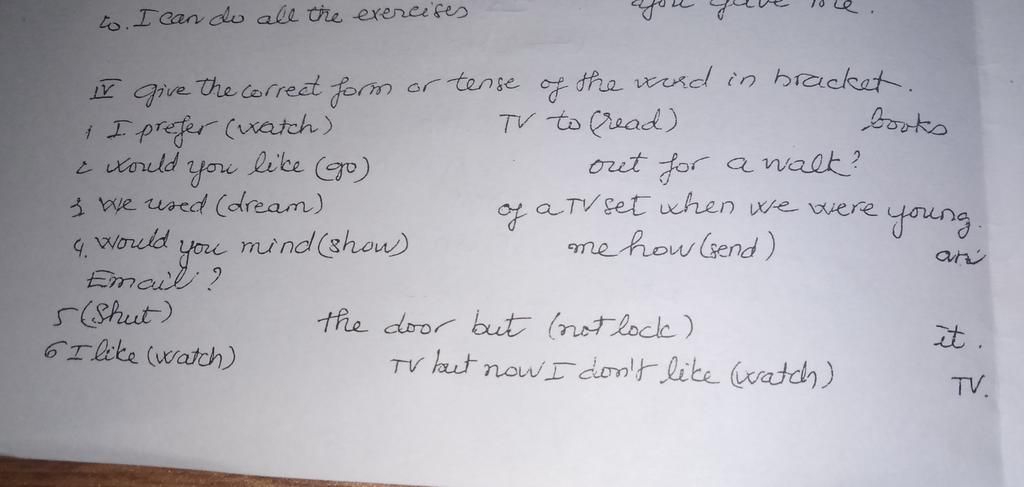 to. I can do all the exercises you gave me.
IV give the correct form or tense of the word in bracket.
1 I prefer (watch) TV to (read) books
2 would you like (go) out for a walk?
3 We used (dream) of a TV set when we were young.
4. would you mind (show) me how (send) an
Email?
5 (Shut) the door but (not lock) it.
6 I like (watch) TV but now I don't like (watch) TV.